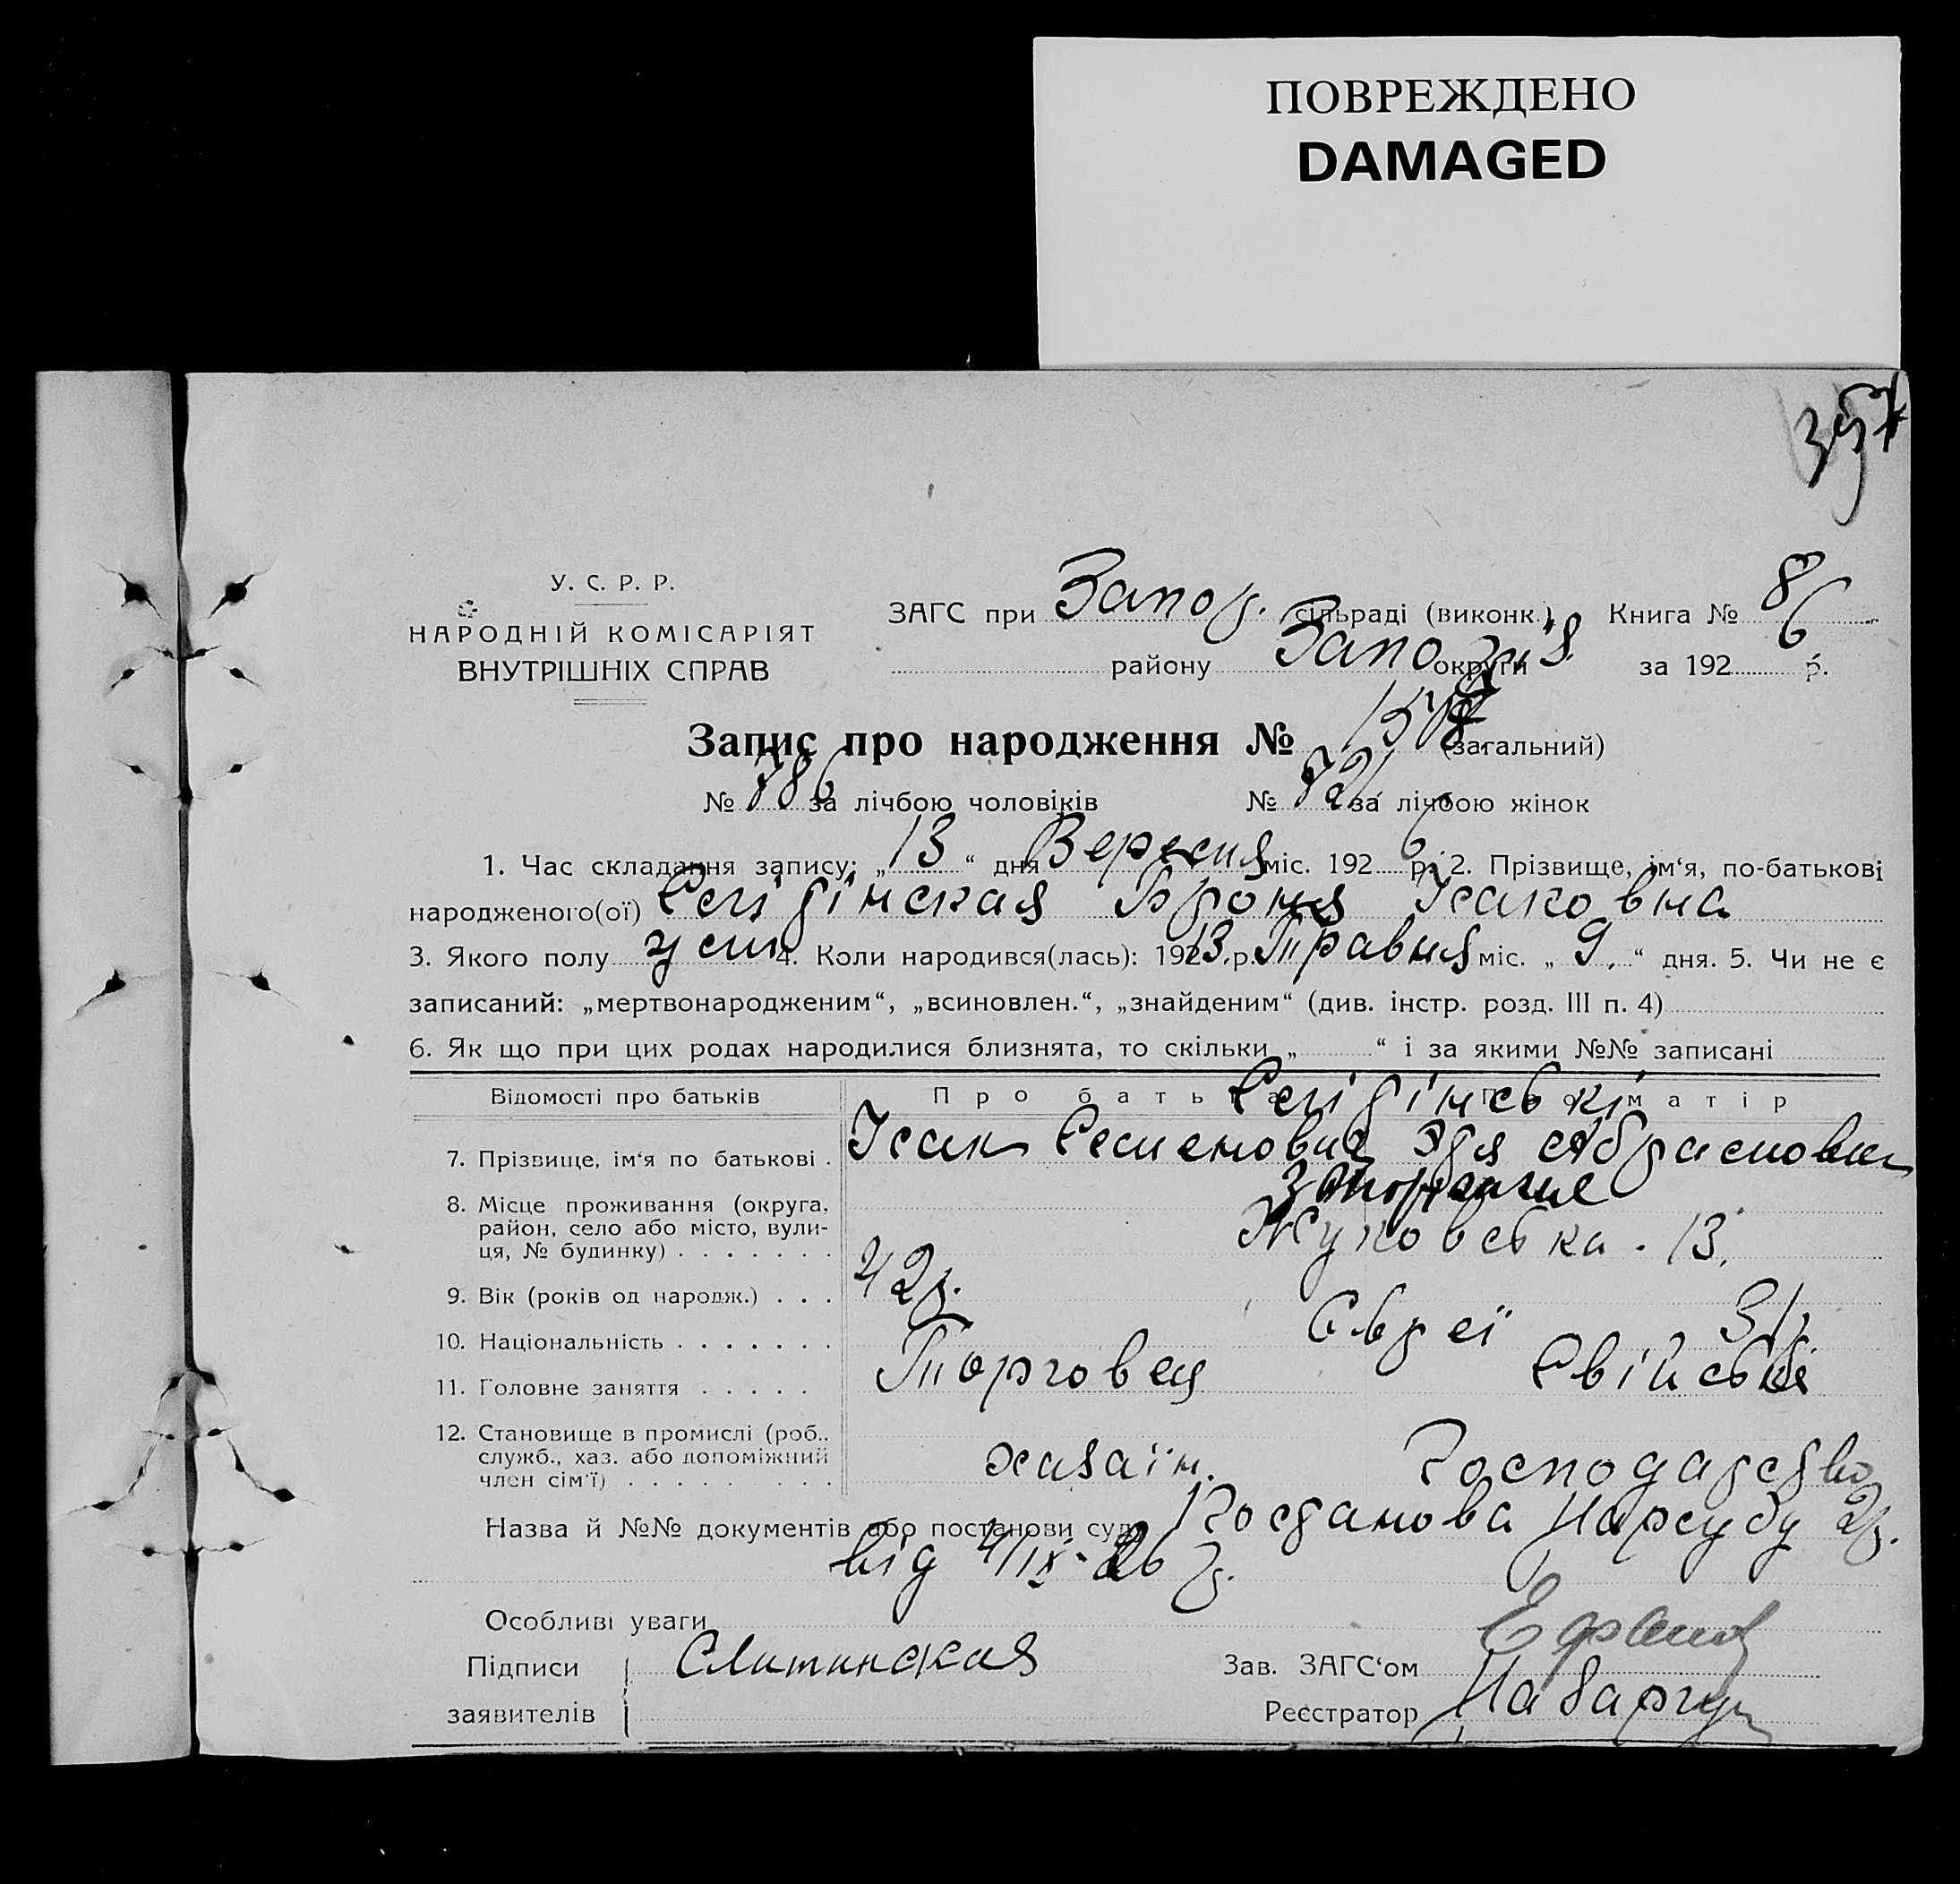 ПОВРЕЖДЕНО
DAMAGED
357
У. С. Р. Р.
НАРОДНІЙ КОМІСАРІЯТ
ВНУТРІШНІХ СПРАВ
ЗАГС при Запор. сільраді (виконк.) Книга № 8
району Запоріз. округи за 192 6 р.
Запис про народження № (загальний)
№ 786 за лічбою чоловіків № 721 за лічбою жінок
1. Час складання запису: „ 13 “ дня Вересня міс. 192 6 р. 2. Прізвище, ім‘я, по-батькові
народженого(ої) Слітінская Броня Ісаковна
3. Якого полу жін 4. Коли народився(лась): 1913 р. Травня міс. „ 9. “ дня. 5. Чи не є
записаний: „мертвонародженим“, „всиновлен.“, „знайденим“ (див. інстр. розд. III п. 4)
6. Як що при цих родах народилися близнята, то скільки „ “ і за якими №№ записані
Відомості про батьків Про батька Про матір
Слітінські
7. Прізвище, ім‘я по батькові . Ісак Семенович Эдя Абрамовна
8. Місце проживання (округа, Запоріжже
район, село або місто, вули-
ця, № будинку) . . . . . . . Жуковська . 13.
9. Вік (років од народж.) . . . 42 р. 31
10. Національність . . . . . . . Євреї
11. Головне заняття . . . . . Торговец Свійське
12. Становище в промислі (роб.,
служб., хаз. або допоміжний
член сім‘ї) . . . . . . . . . хазаїн. Господарство
Назва й №№ документів або постанови суду Постанова Нарсуду 2 р.
від 4/IX-26 р.
Особливі уваги
Підписи Слитинская Зав. ЗАГС‘ом
заявителів Реєстратор